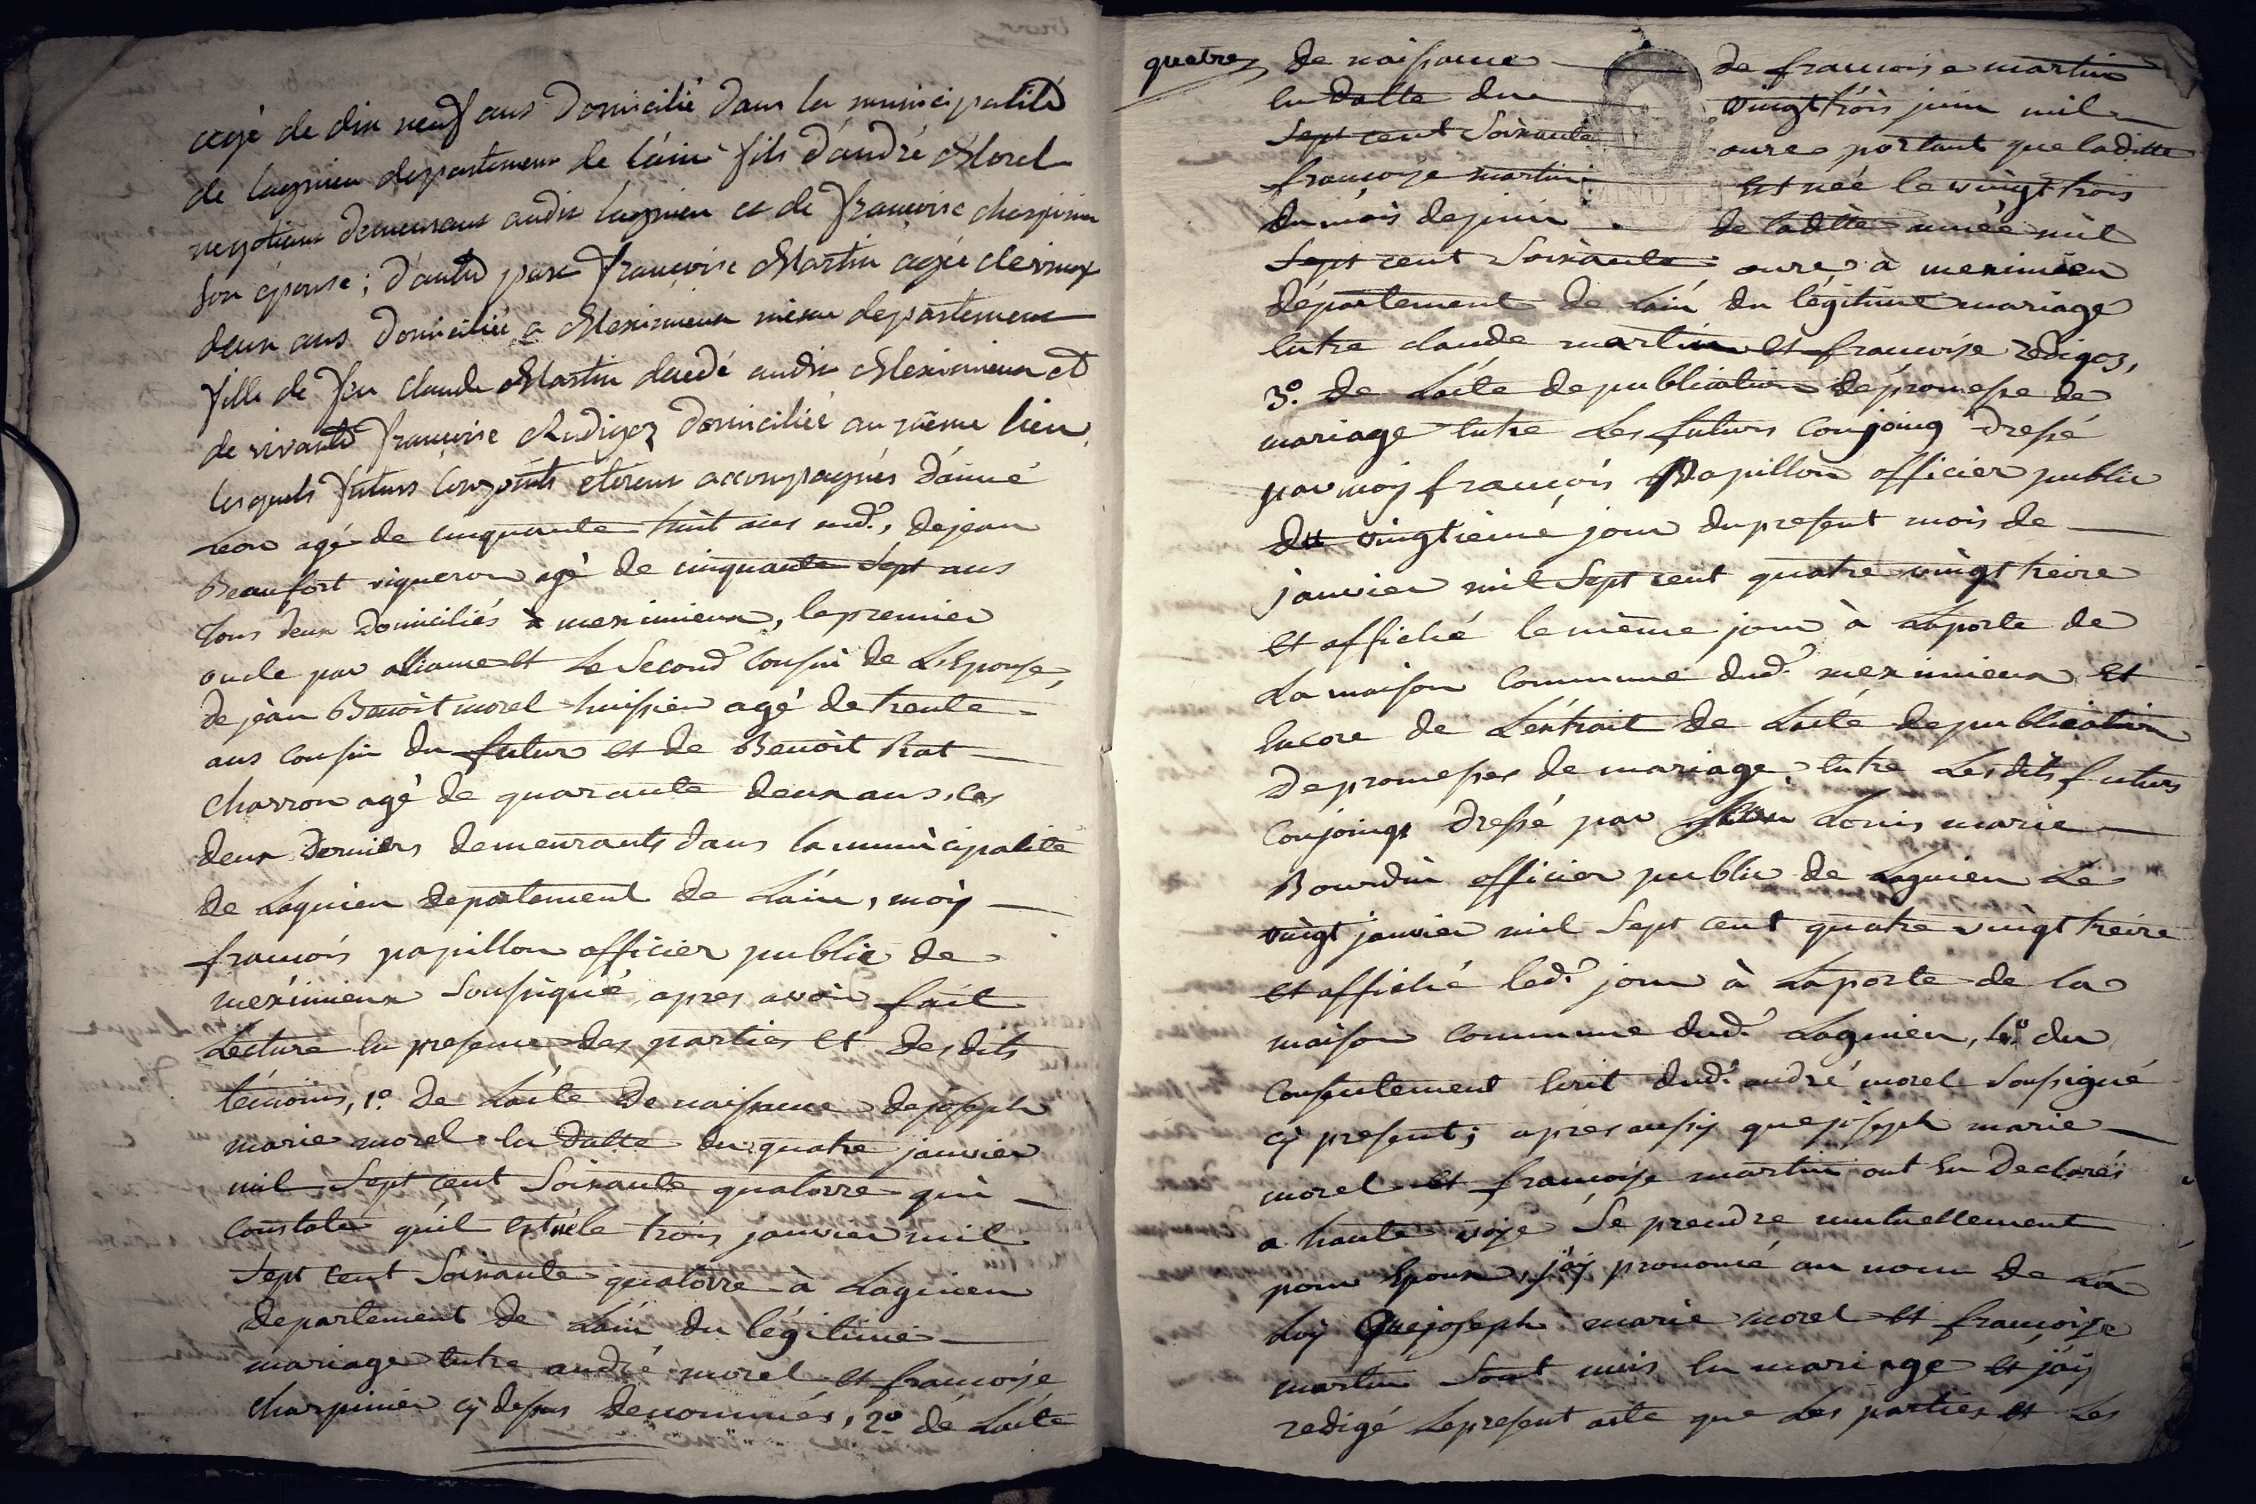 agé de dix neuf ans domicilié dans la municipalité
de lagnieu departement de l'ain fils d'andré Morel
negotiant demeurant audit lagnieu et de françoise charpinier
son épouse; d'autre part françoise Martin agée de vingt
deux ans domiciliée a Meximieux meme departement
fille de feu claude Martin decedé audit Meximieux et
de vivante françoise Rudigoz domiciliée au même lieu,
lesquels futurs conjoints etoient accompagnés d'aimé
agé de cinquante huit ans md., de jean
Beaufort vigneron agé de cinquante sept ans
tous deux domiciliés à meximieux, le premier
oncle par alliance et le second cousin de L'Epouse,
de jèan Benoit morel huissier agé de trente
ans cousin du futur et de Benoît Rat
charron agé de quarante deux ans, ces
deux derniers demeurants dans la municipalité
de Lagnieu departement de Lain, moÿ
francois papillon officier public de
meximieux soussigné, apres avoir fait
Lecture en presence des parties et des dits
témoins, 1.º de Lacte de naissance de joseph
marie morel en datte du quatre janvier
mil sept cent soixante quatorze qui
constate qu'il est né le trois janvier mil
sept cent soixante quatorze à Lagnieu
departement de Lain du légitime
mariage entre andré morel et françoise
charpinier cÿ dessus denommés, 2.º de Lacte
quatre
de naissance de francoise martin
en datte du vingt trois juin mil
sept cent soixante onze portant que laditte
francoise martin est née le vingt trois
du mois de juin de laditte année mil
sept cent soixante onze à meximieu
département de Lain du légitime mariage
entre claude martin et françoise redigoz,
3.º de Lacte de publication de promesse de
mariage entre Les futurs conjoing dressé
par moÿ françois Papillon officier public
du vingtieme jour du present mois de
janvier mil sept cent quatre vingt treize
et affiché le même jour à Laporte de
La maison commune dud. meximieux et
encore de L'extrait de Lacte de publication
de promesses de mariage, entre Lesdits futurs
conjoings dressé par Louis marie
Bourdin officier public de Lagnieu Le
vingt janvier mil sept cent quatre vingt treize
et affiché led. jour à Laporte de la
maison commune dud. Lagnieu, 4.º du
consentement écrit dud. andré morel soussigné
cÿ present; après aussÿ que joseph marie
morel et françoise martin ont eu declarés
a haute voix se prendre mutuellement
pour Epoux, j'aÿ prononcé au nom de La
Loÿ Que joseph marie morel et françoise
martin sont unis en mariage et j'aÿ
redigé Lepresent acte que Les parties et Les